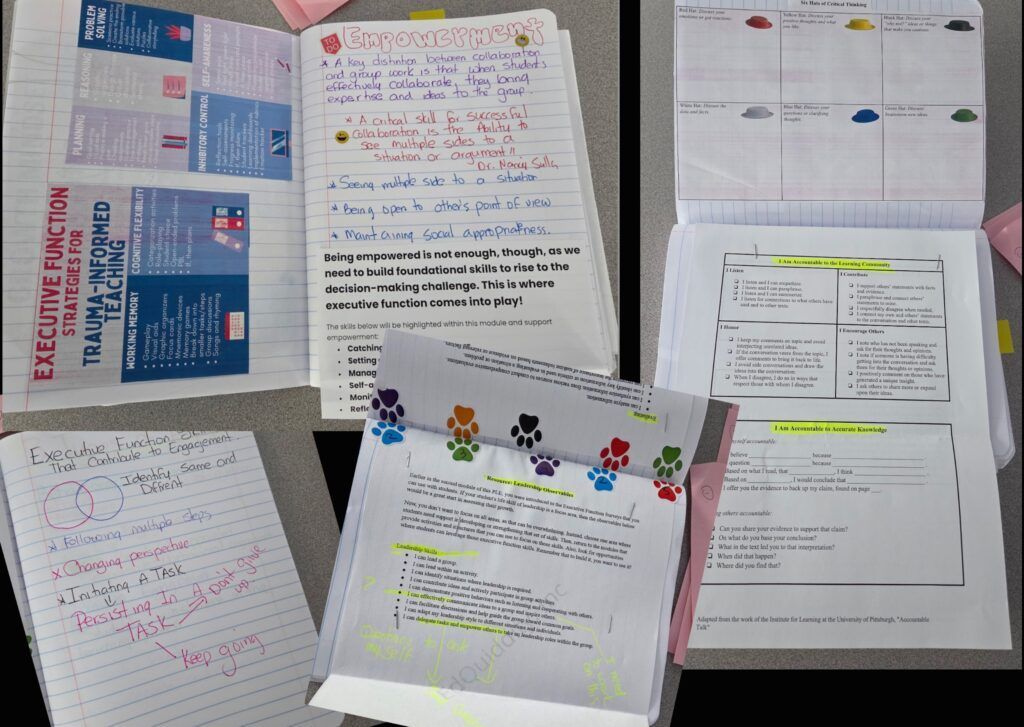 EXECUTIVE FUNCTION
STRATEGIES FOR
TRAUMA-INFORMED
TEACHING
WORKING MEMORY
Gameplay
Visual aids
Graphic organizers
Focus cards
Mnemonic devices
Memory games
Break down into
smaller tasks/steps
Group discussions
Songs and rhyming
COGNITIVE FLEXIBILITY
Categorization activities
Role-playing
Student choice
Open-ended problems
PBL
If, then plans
PLANNING
INHIBITORY CONTROL
REASONING
SELF-AWARENESS
PROBLEM
SOLVING
TO
DO
EMPOWERMENT
* A key distintion between collaboration
and group work is that when students
effectively collaborate, they bring
expertise and ideas to the group.
* A critical skill for successful
Collaboration is the Ability to
see multiple sides to a
situation or argument!!
Dr. Nancy Sulla
* Seeing multiple side to a situation
* Being open to other's point of view
* Maintaining social appropriatness.
Being empowered is not enough, though, as we
need to build foundational skills to rise to the
decision-making challenge. This is where
executive function comes into play!
The skills below will be highlighted within this module and support
empowerment:
Catching
Setting
Manag
Self-a
Moni
Refle
Six Hats of Critical Thinking
Red Hat: Discuss your
emotions or gut reactions.
Yellow Hat: Discuss your
positive thoughts and what
you like.
Black Hat: Discuss
your "why not?" ideas or things
that make you cautious
White Hat: Discuss the
data and facts.
Blue Hat: Discuss your
questions or clarifying
thoughts.
Green Hat: Discuss/
brainstorm new ideas.
I Am Accountable to the Learning Community
I Listen
❑ I listen and I can empathize.
❑ I listen and I can paraphrase.
❑ I listen and I can summarize.
❑ I listen for connections to what others have
said and to other texts.
I Contribute
❑ I support others' statements with facts
and evidence.
❑ I paraphrase and connect others'
statements to mine.
❑ I respectfully disagree when needed.
❑ I connect my own and others' statements
to the conversation and other texts.
I Honor
❑ I keep my comments on topic and avoid
interjecting unrelated ideas.
❑ If the conversation veers from the topic, I
offer comments to bring it back to life.
❑ I avoid side conversations and draw the
ideas into the conversation.
❑ When I disagree, I do so in ways that
respect those with whom I disagree.
I Encourage Others
❑ I note who has not been speaking and
ask for their thoughts and opinions.
❑ I note if someone is having difficulty
getting into the conversation and ask
them for their thoughts or opinions.
❑ I positively comment on those who have
generated a unique insight.
❑ I ask others to share more or expand
upon their ideas.
I Am Accountable to Accurate Knowledge
myself accountable:
believe ___ because ___
question ___ because ___
Based on what I read, that ___, I think ___
Based on ___, I would conclude that ___
I offer you the evidence to back up my claim, found on page ___
ng others accountable:
❑ Can you share your evidence to support that claim?
❑ On what do you base your conclusion?
❑ What in the text led you to that interpretation?
❑ When did that happen?
❑ Where did you find that?
Adapted from the work of the Institute for Learning at the University of Pittsburgh, "Accountable
Talk"
Executive Function
That Contribute to Engagement.
Identify Same and
Diffrent
* Following multiple steps
* Changing perspective
* Initiating A TASK
Persisting In A
TASK
Don't give
up
Keep going
Evaluating
I can analyze information.
Resource: Leadership Observables
Earlier in the second module of this PLE, you were introduced to the Executive Function Surveys that you
can use with students. If your student's life skill of leadership is a focus area, then the observables below
would be a great start in assessing their growth.
Now, you don't want to focus on all areas, as that can be overwhelming. Instead, choose one area where
students need support in developing or strengthening that set of skills. Then, return to the modules that
provide activities and structures that you can use to focus on those skills. Also, look for opportunities
where students can leverage those executive function skills. Remember that to build it, you want to use it!
Leadership Skills
I can lead a group.
I can lead within an activity.
I can identify situations where leadership is required.
I can contribute ideas and actively participate in group activities
I can demonstrate positive behaviors such as listening and cooperating with others.
I can effectively communicate ideas to a group and inspire others.
I can facilitate discussions and help guide the group toward common goals.
I can adapt my leadership style to different situations and individuals.
I can delegate tasks and empower others to take on leadership roles within the group.